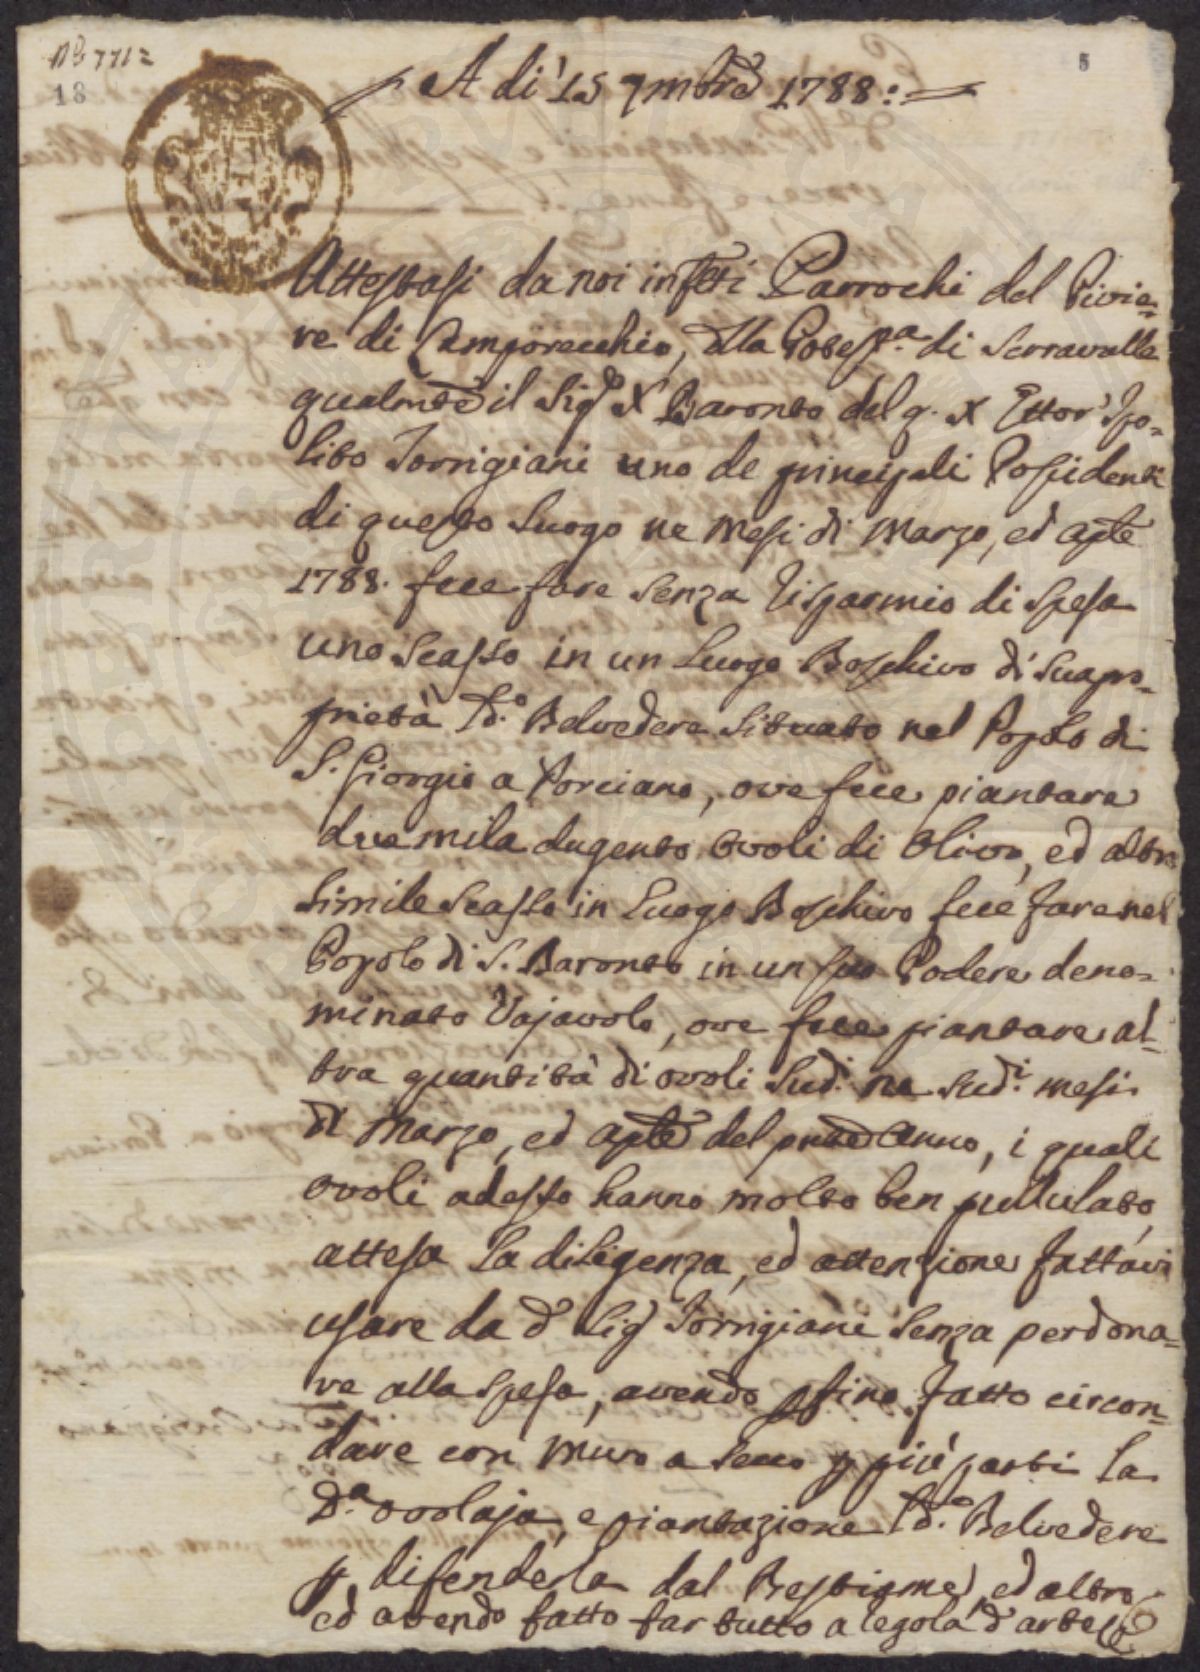 N.º 771=
18
5
A di 15 7mbre 1788:
Attestasi da noi infrti Parrochi del Pivie=
re di Camporecchio, dlla Potestª. di Serravalle
qualmte il Sigr Baronto del q. Ettor' Ipo=
lito Torrigiani uno de principali Possidenti
di questo Luogo ne Mesi di Marzo, ed aple
1788. fece fare senza risparmio di spesa
uno scasso in un Luogo Boschivo di sua pro=
prietà Ldº. Belvedere situato nel Popolo di
S. Giorgio a Porciano, ove fece piantare
due mila dugento ovoli di Olivo, ed altro
simile scasso in Luogo Boschivo fece fare nel
Popolo di S. Baronto in un suo Podere deno=
minato Vajavolo, ove fece piantare al=
tra quantità di ovoli sudi. ne sudi. mesi
di Marzo, ed aple del pnte Anno, i quali
ovoli adesso hanno molto ben pullulato,
attesa la diligenza, ed attenzione fattavi
usare da d. Sigr Torrigiani senza perdona=
re alla spesa, avendo pfino fatto circon=
dare con muro a secco p più parti la
dª. ovolaja, e piantazione Ldº. Belvedere
p difenderla dal Bestiame, ed altro,
ed avendo fatto far tutto a regola d'arte